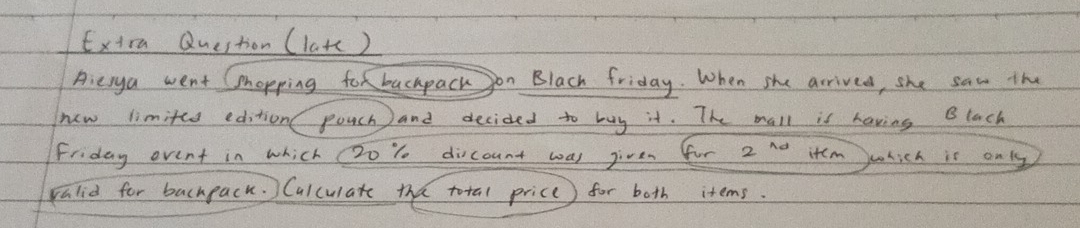 Extra Question (late)
Aiesya went shopping for backpack on Blach friday. When she arrived, she saw the
new limited edition pouch and decided to buy it. The mall is having Blach
Friday event in which 20% discount was given for 2nd item which is only
valid for backpack. Calculate the total price for both items.